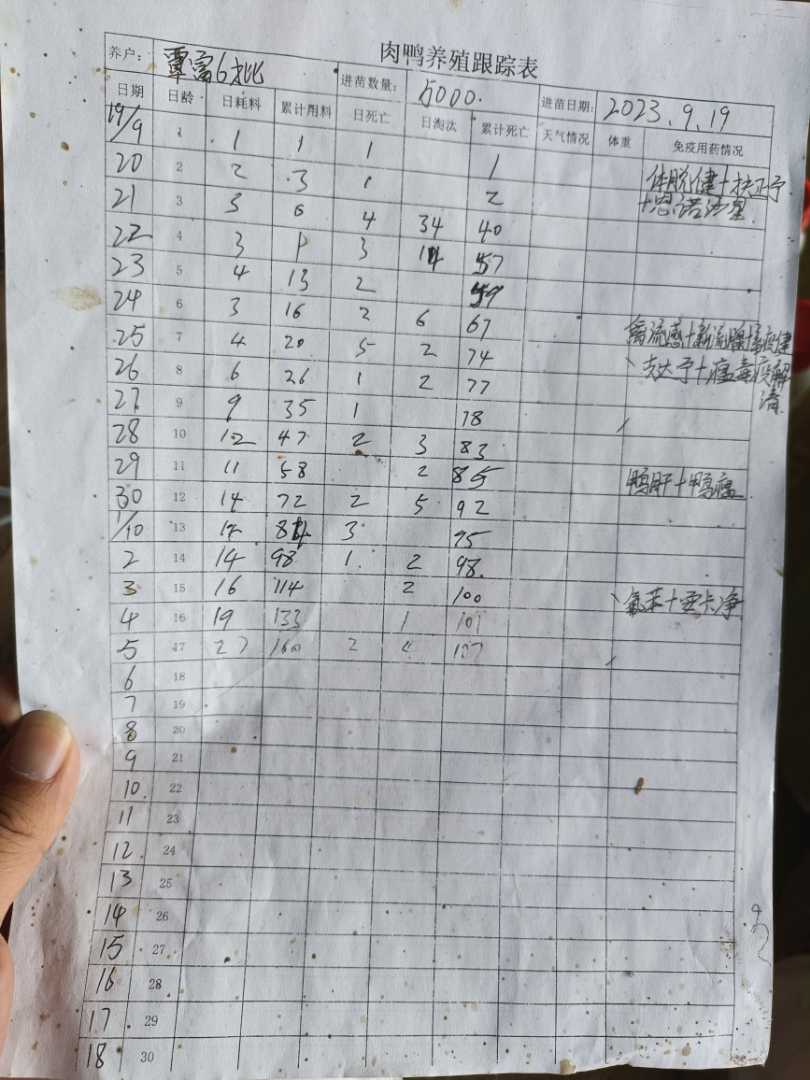 肉鸭养殖跟踪表
养户: 覃富6批 进苗数量: 5000. 进苗日期: 2023.9.19
日期 日龄 日耗料 累计用料 日死亡 日淘汰 累计死亡 天气情况 体重 免疫用药情况
19/9 1 1 1 1 1
20 2 2 3 1 2 体肽健+扶正予
21 3 3 6 4 34 40 +恩诺沙星
22 4 3 9 3 14 57
23 5 4 13 2 59
24 6 3 16 2 6 67
25 7 4 20 5 2 74 禽流感+新流腺
26 8 6 26 1 2 77 、支达予+病毒
27 9 9 35 1 78 清
28 10 12 47 2 3 83
29 11 11 58 2 85
30 12 14 72 2 5 92 鸭肝+鸭瘟
1/10 13 12 84 3 95
2 14 14 98 1 2 98.
3 15 16 114 2 100
4 16 19 133 1 101 、氟苯+亚卡净
5 17 27 160 2 4 107
6 18
7 19
8 20
9 21
10. 22
11 23
12 24
13 25
14 26
15 27
16 28
17 29
18 30